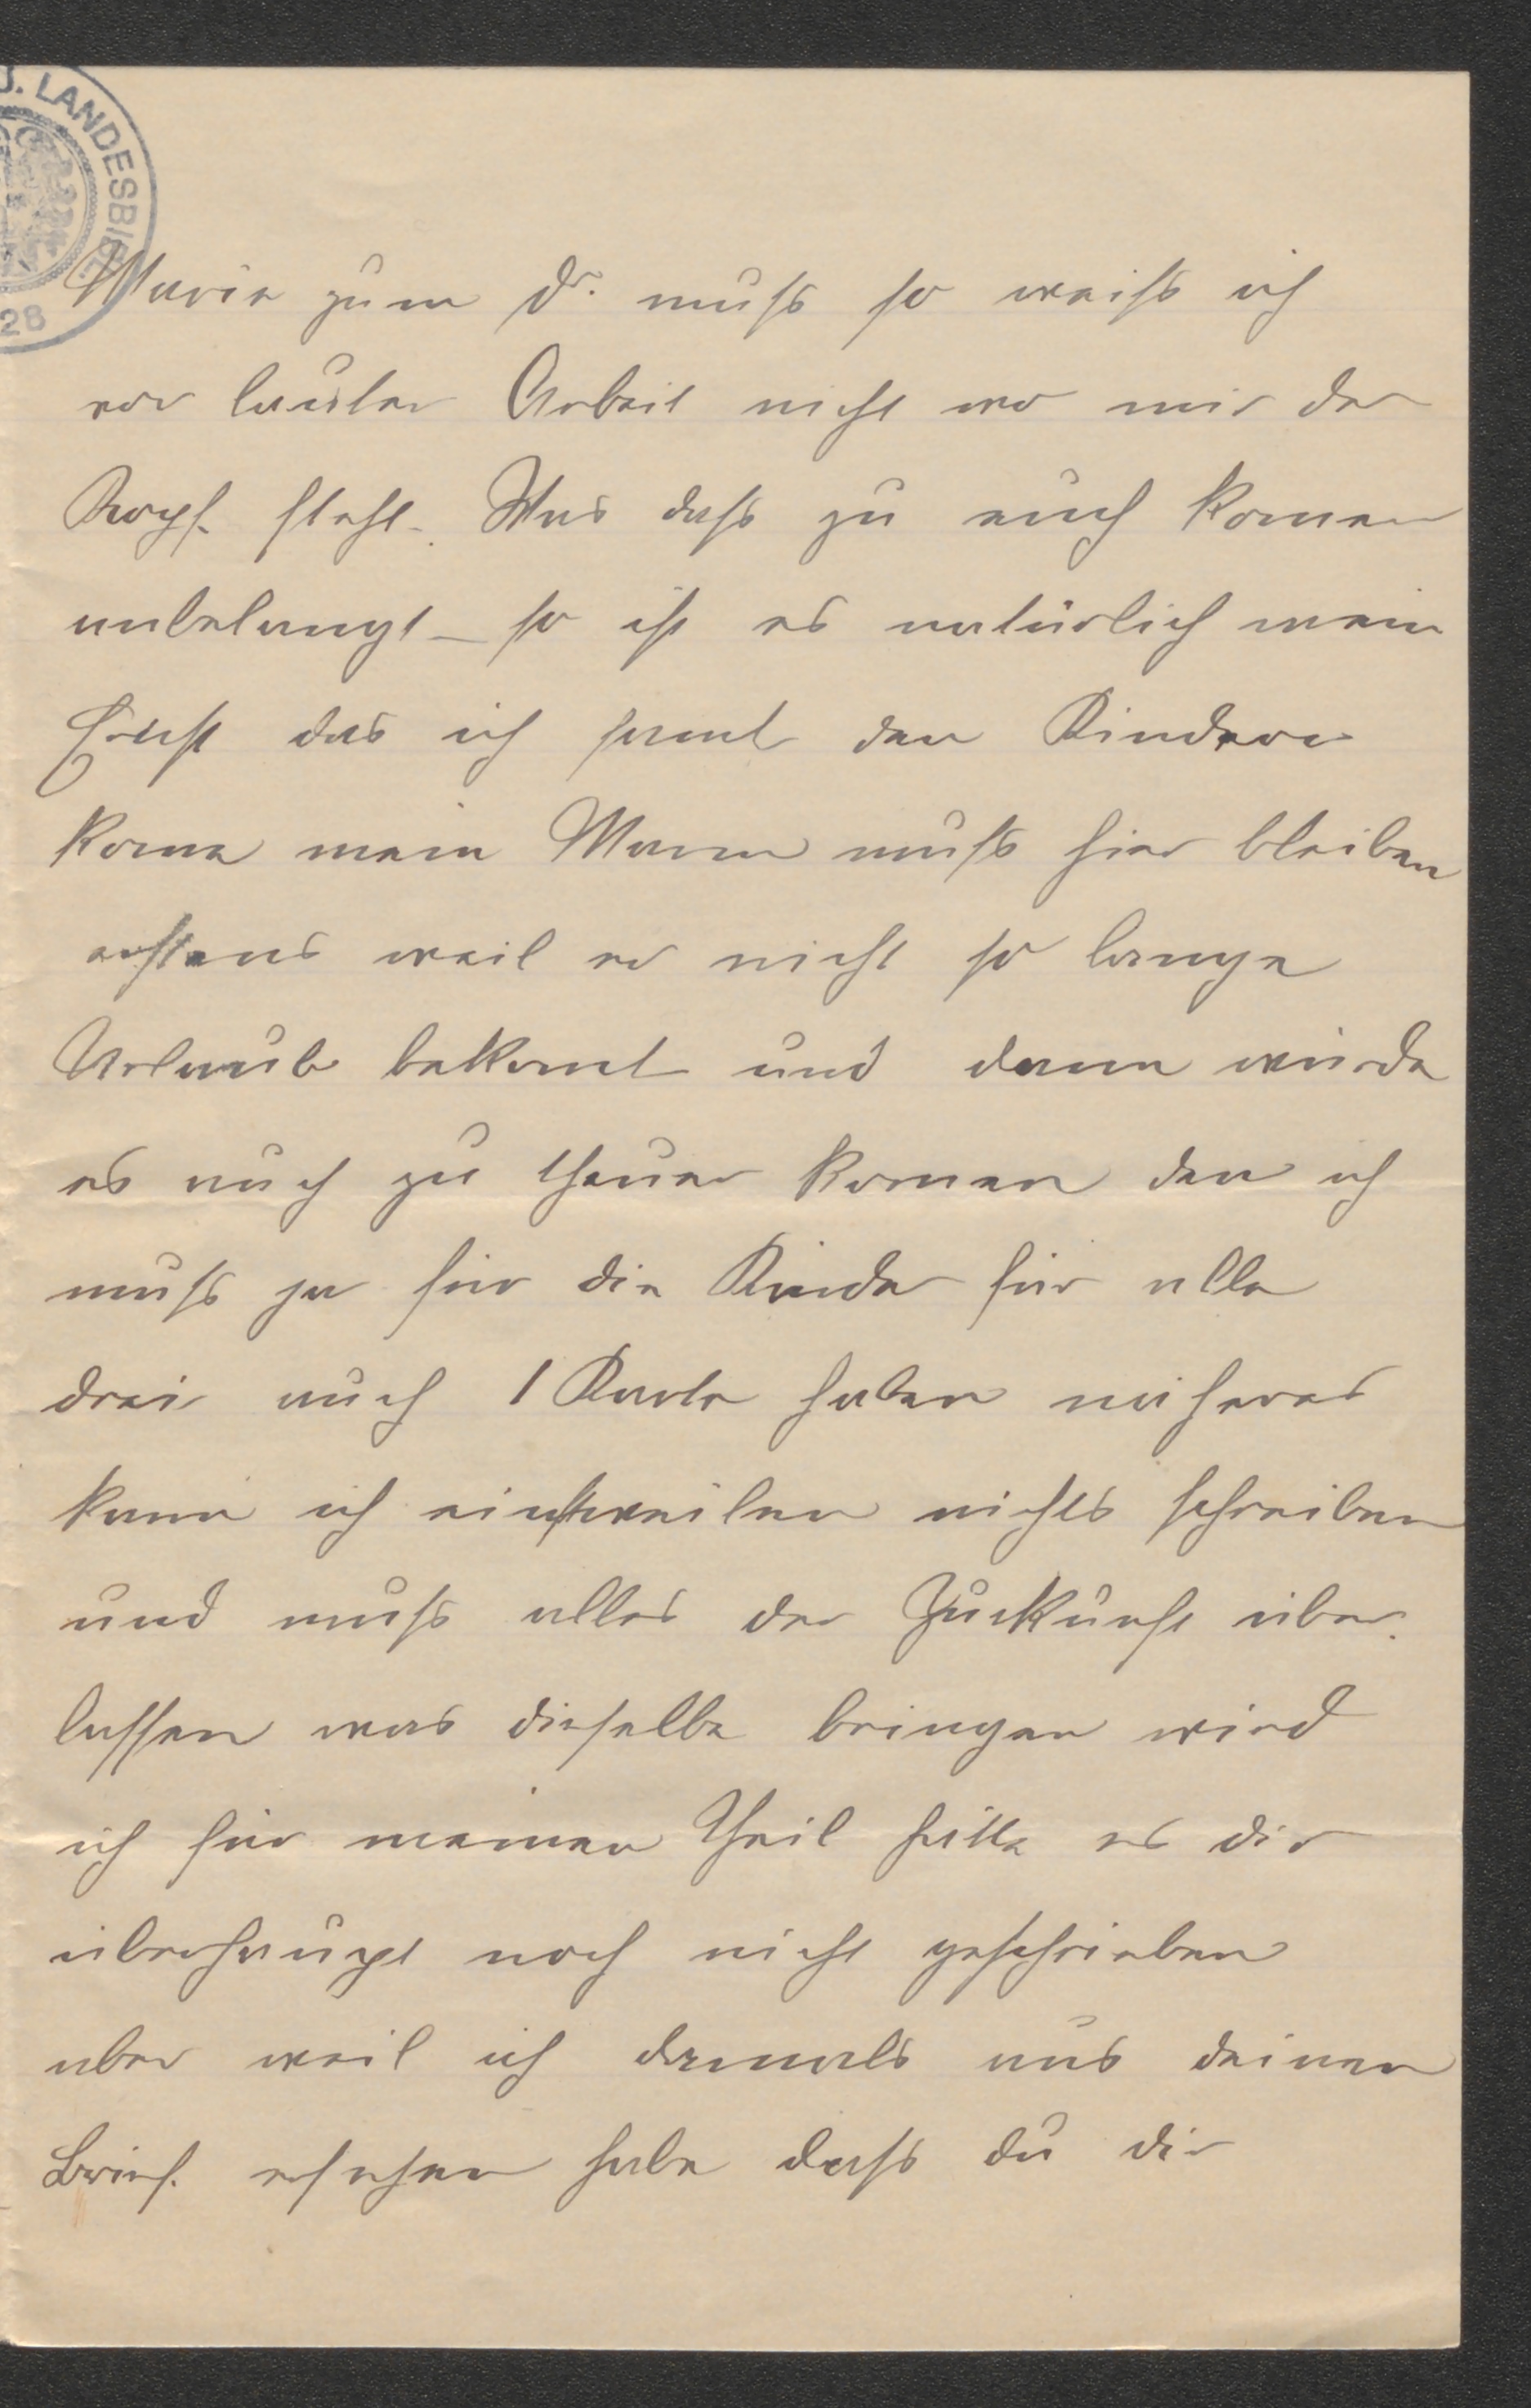 J. LANDESBIBL
28
Marie zum Dr. muß so weiß ich
vor lauter Arbeit nicht wo mir der
Kopf steht. Was daß zu euch komen
anbelangt – so ist es natürlich mein
Ernst das ich samt den Kindern
kome mein Mann muß hier bleiben
erstens weil er nicht so lange
Urlaub bekomt und dann würde
es auch zu theuer komen den ich
muß ja für die Kinder für alle
drei auch 1 Karte haben näheres
kann ich einstweilen nichts schreiben
und muß alles der Zukunft über
lassen was dieselbe bringen wird
ich für meinen Theil hätte es dir
überhaupt noch nicht geschrieben
aber weil ich damals aus deinen
Brief ersehen habe daß du dir